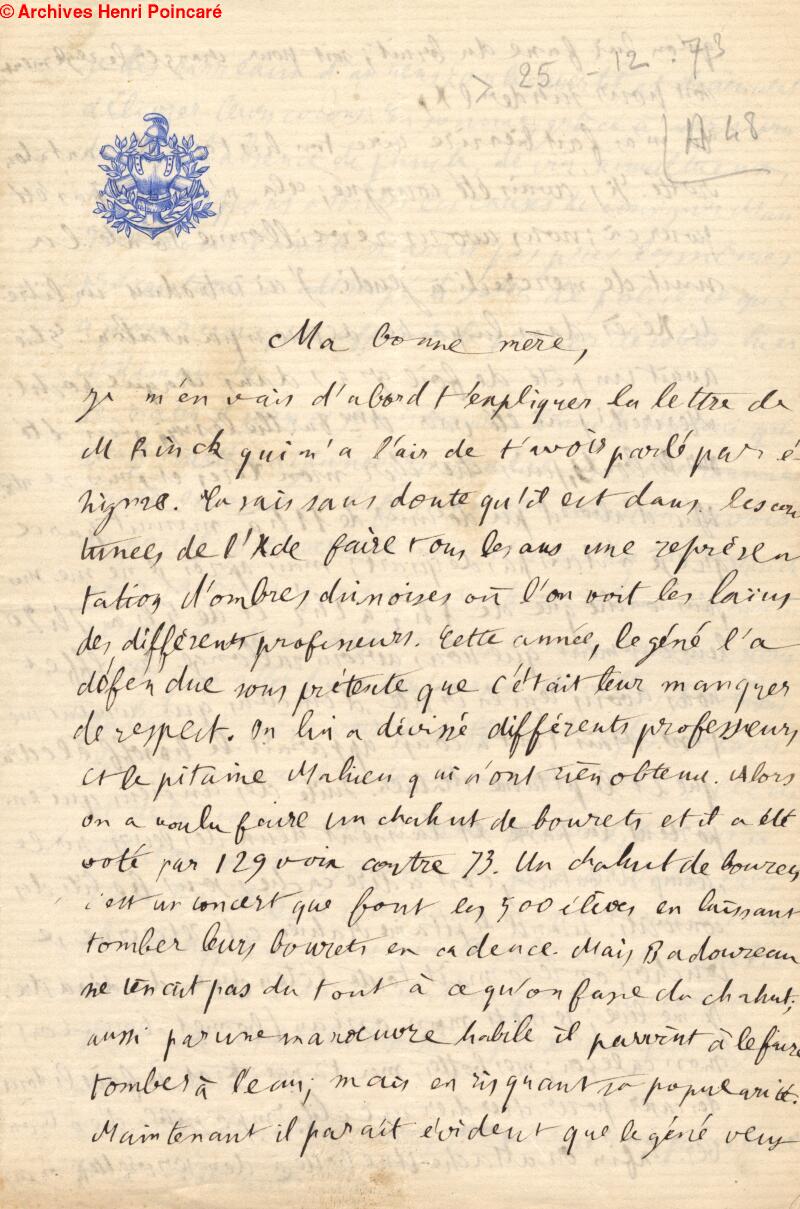 © Archives Henri Poincaré
25-12-73
A 48
Ma bonne mère,
je m'en vais d'abord t'expliquer la lettre de
M Rinck qui m'a l'air de t'avoir parlé par é
nigmes. Tu sais sans doute qu'il est dans les cou
tumes de l'X de faire tous les ans une représen
tation d'ombres chinoises où l'on voit les laïus
des différents professeurs. Cette année, le géné l'a
défendue sous prétexte que c'était leur manquer
de respect. On lui a dévissé différents professeurs
et le pitaine Mahieu qui n'ont rien obtenu. Alors
on a voulu faire un chahut de bourets et il a été
voté par 129 voix contre 73. Un chahut de bourets
c'est un concert que font les 500 élèves en laissant
tomber leurs bourets en cadence. Mais Badoureau
ne tenait pas du tout à ce qu'on fasse du chahut;
aussi par une manoeuvre habile il parvint à le faire
tomber à l'eau; mais en risquant sa popularité.
Maintenant il parait évident que le géné veus